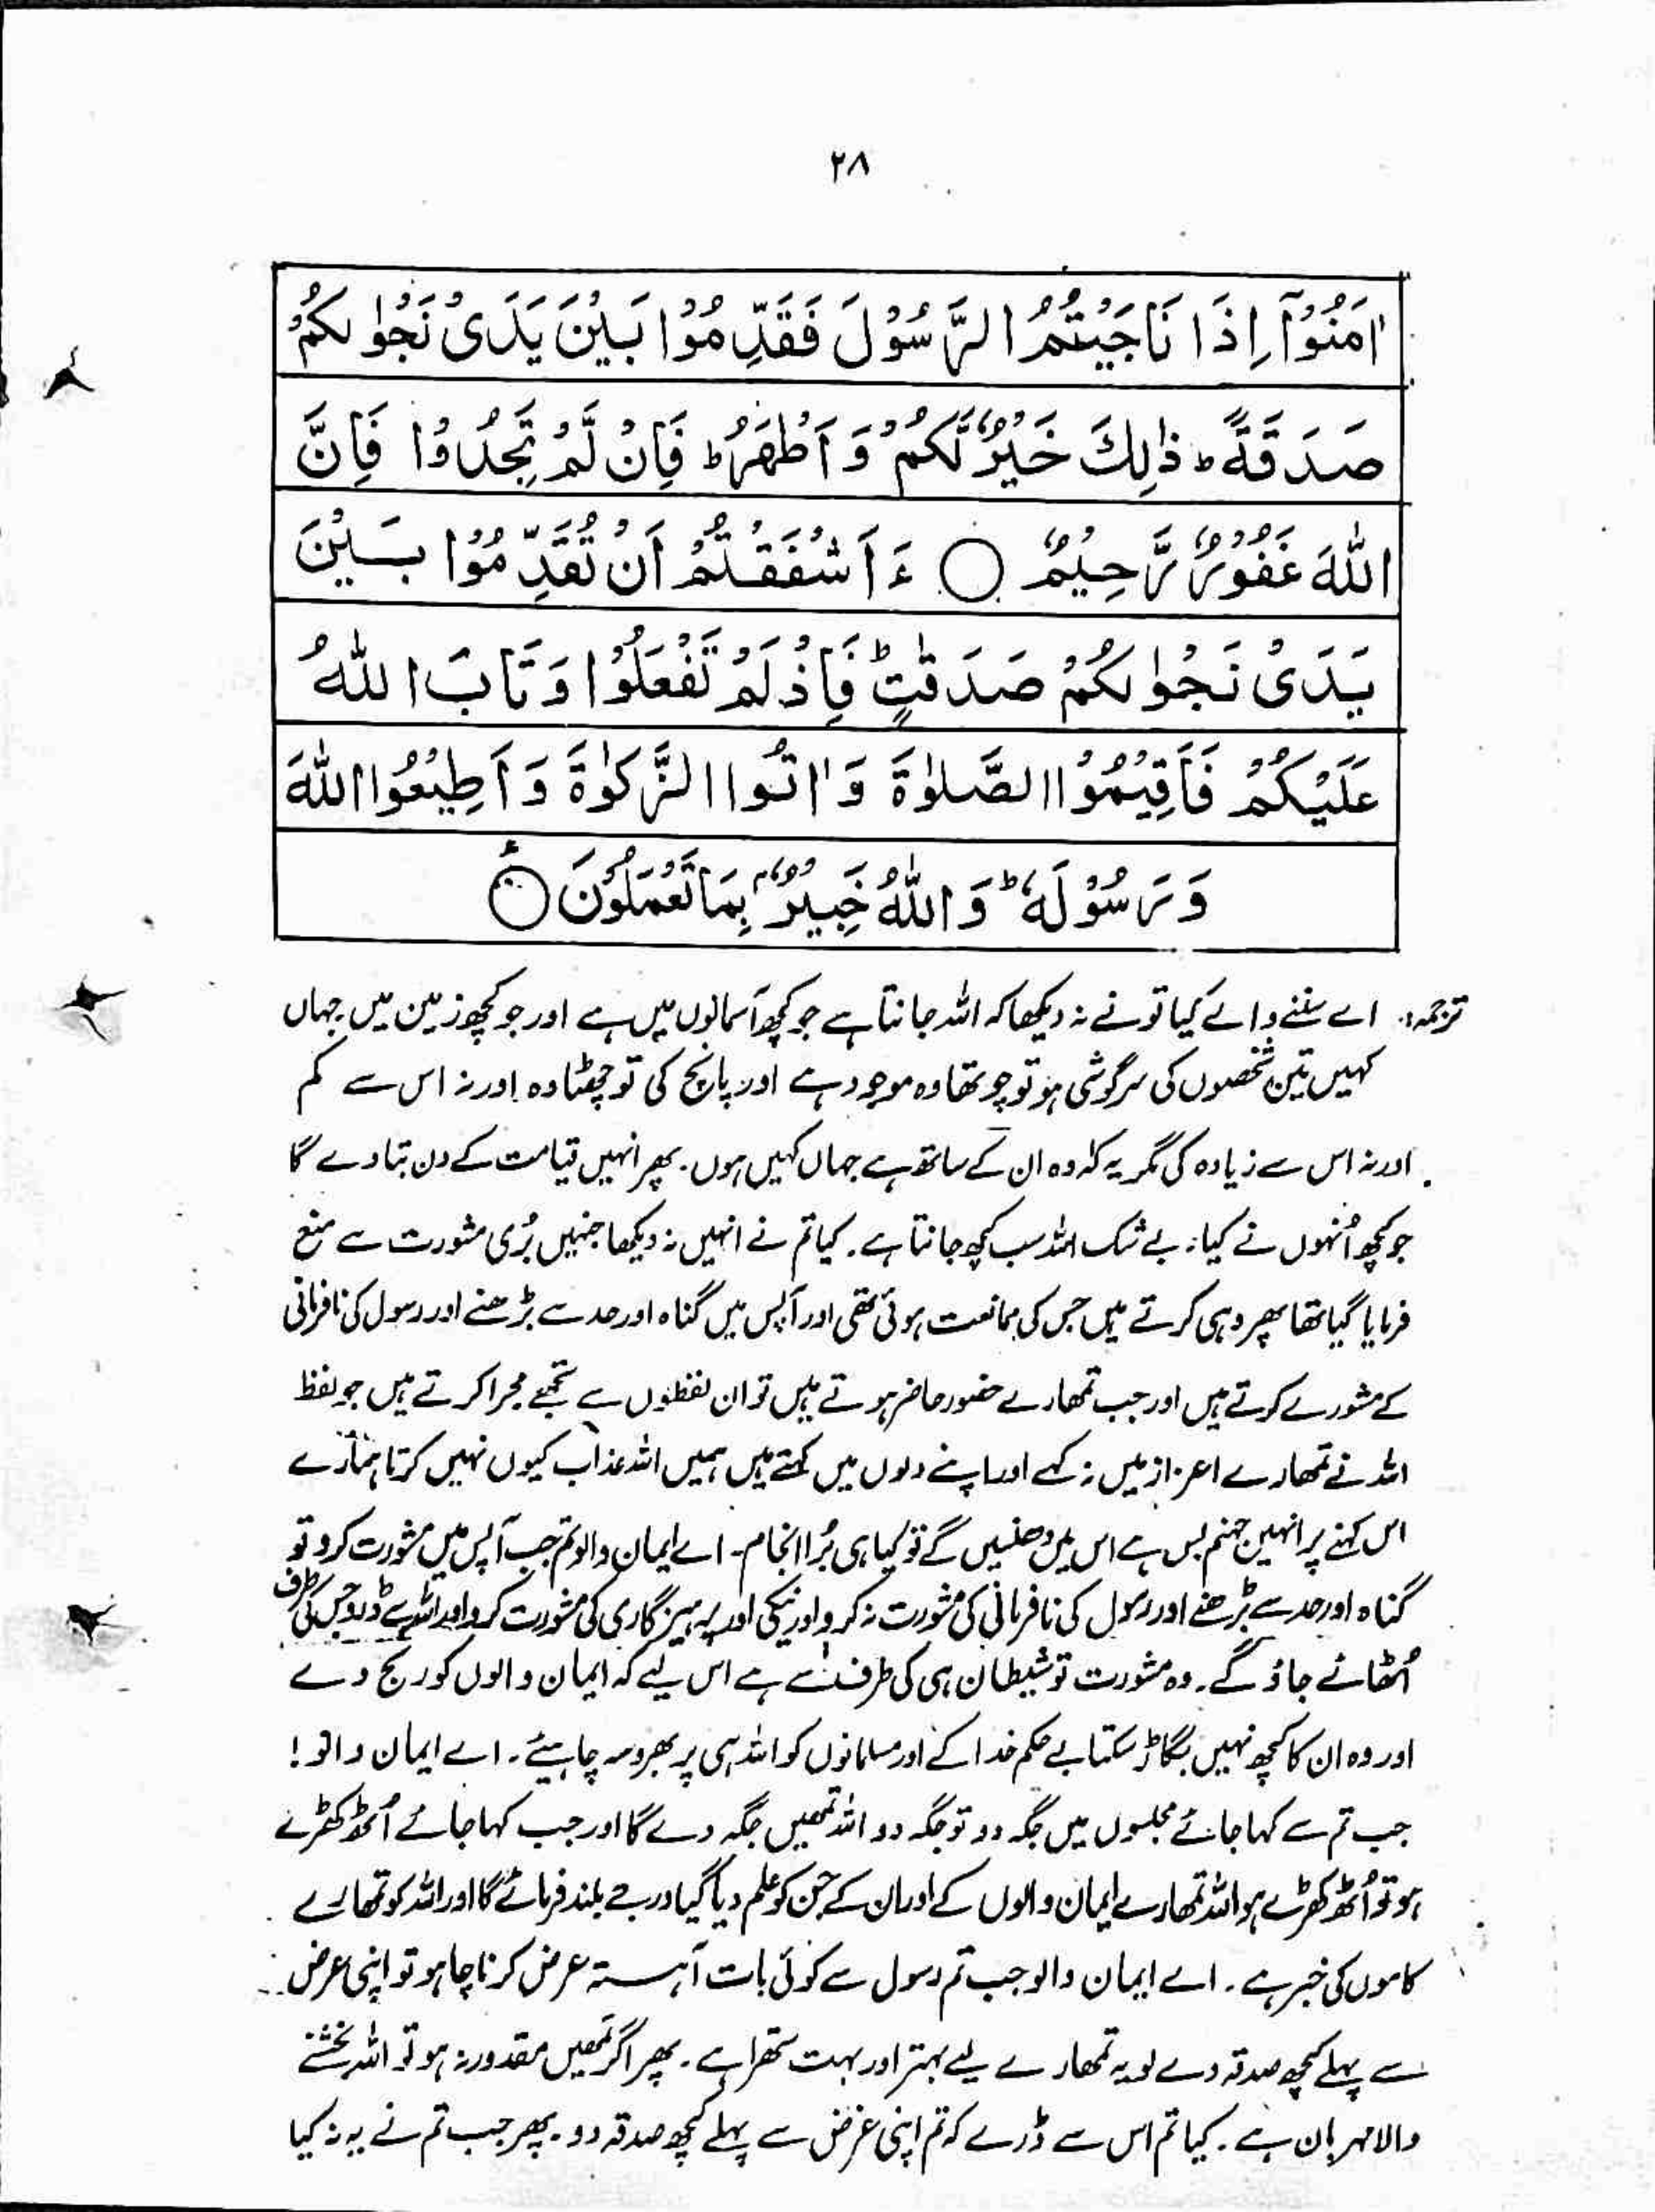 ۲۸
اٰمَنُوْۤا اِذَا نَاجَیْتُمُ الرَّسُوْلَ فَقَدِّمُوْا بَیْنَ یَدَیْ نَجْوٰىكُمْ
صَدَقَةً ؕ ذٰلِكَ خَیْرٌ لَّكُمْ وَ اَطْهَرُ ؕ فَاِنْ لَّمْ تَجِدُوْا فَاِنَّ
اللّٰهَ غَفُوْرٌ رَّحِیْمٌ ○ ءَاَشْفَقْتُمْ اَنْ تُقَدِّمُوْا بَیْنَ
یَدَیْ نَجْوٰىكُمْ صَدَقٰتٍ ؕ فَاِذْ لَمْ تَفْعَلُوْا وَ تَابَ اللّٰهُ
عَلَیْكُمْ فَاَقِیْمُوا الصَّلٰوةَ وَ اٰتُوا الزَّكٰوةَ وَ اَطِیْعُوا اللّٰهَ
وَ رَسُوْلَهٗ ؕ وَ اللّٰهُ خَبِیْرٌۢ بِمَا تَعْمَلُوْنَ ○
ترجمہ: اے سننے والے کیا تو نے نہ دیکھا کہ اللہ جانتا ہے جو کچھ آسمانوں میں ہے اور جو کچھ زمین میں جہاں
کہیں تین شخصوں کی سرگوشی ہو تو چوتھا وہ موجود ہے اور پانچ کی تو چھٹا وہ اور نہ اس سے کم
اور نہ اس سے زیادہ کی مگر یہ کہ وہ ان کے ساتھ ہے جہاں کہیں ہوں۔ پھر انہیں قیامت کے دن بتا دے گا
جو کچھ اُنہوں نے کیا۔ بے شک اللہ سب کچھ جانتا ہے۔ کیا تم نے انہیں نہ دیکھا جنہیں بُری مشورت سے منع
فرمایا گیا تھا پھر وہی کرتے ہیں جس کی ممانعت ہوئی تھی اور آپس میں گناہ اور حد سے بڑھنے اور رسول کی نافرمانی
کے مشورے کرتے ہیں اور جب تمھارے حضور حاضر ہوتے ہیں تو ان لفظوں سے تجھے مجرا کرتے ہیں جو لفظ
اللہ نے تمھارے اعزاز میں نہ کہے اور اپنے دلوں میں کہتے ہیں ہمیں اللہ عذاب کیوں نہیں کرتا ہمارے
اس کہنے پر انہیں جہنم بس ہے اس میں دھنسیں گے تو کیا ہی بُرا انجام۔ اے ایمان والو تم جب آپس میں مشورت کرو تو
گناہ اور حد سے بڑھنے اور رسول کی نافرمانی کی مشورت نہ کرو اور نیکی اور پرہیزگاری کی مشورت کرو اور اللہ سے ڈرو جس کی طرف
اُٹھائے جاؤ گے۔ وہ مشورت تو شیطان ہی کی طرف سے ہے اس لیے کہ ایمان والوں کو رنج دے
اور وہ ان کا کچھ نہیں بگاڑ سکتا بے حکم خدا کے اور مسلمانوں کو اللہ ہی پر بھروسہ چاہیئے۔ اے ایمان والو!
جب تم سے کہا جائے مجلسوں میں جگہ دو تو جگہ دو اللہ تمھیں جگہ دے گا اور جب کہا جائے اُٹھ کھڑے
ہو تو اُٹھ کھڑے ہو اللہ تمھارے ایمان والوں کے اور ان کے جن کو علم دیا گیا درجے بلند فرمائے گا اور اللہ کو تمھارے
کاموں کی خبر ہے۔ اے ایمان والو جب تم رسول سے کوئی بات آہستہ عرض کرنا چاہو تو اپنی عرض
سے پہلے کچھ صدقہ دے لو یہ تمھارے لیے بہتر اور بہت ستھرا ہے۔ پھر اگر تمھیں مقدور نہ ہو تو اللہ بخشنے
والا مہربان ہے۔ کیا تم اس سے ڈرے کہ تم اپنی عرض سے پہلے کچھ صدقہ دو۔ پھر جب تم نے یہ نہ کیا